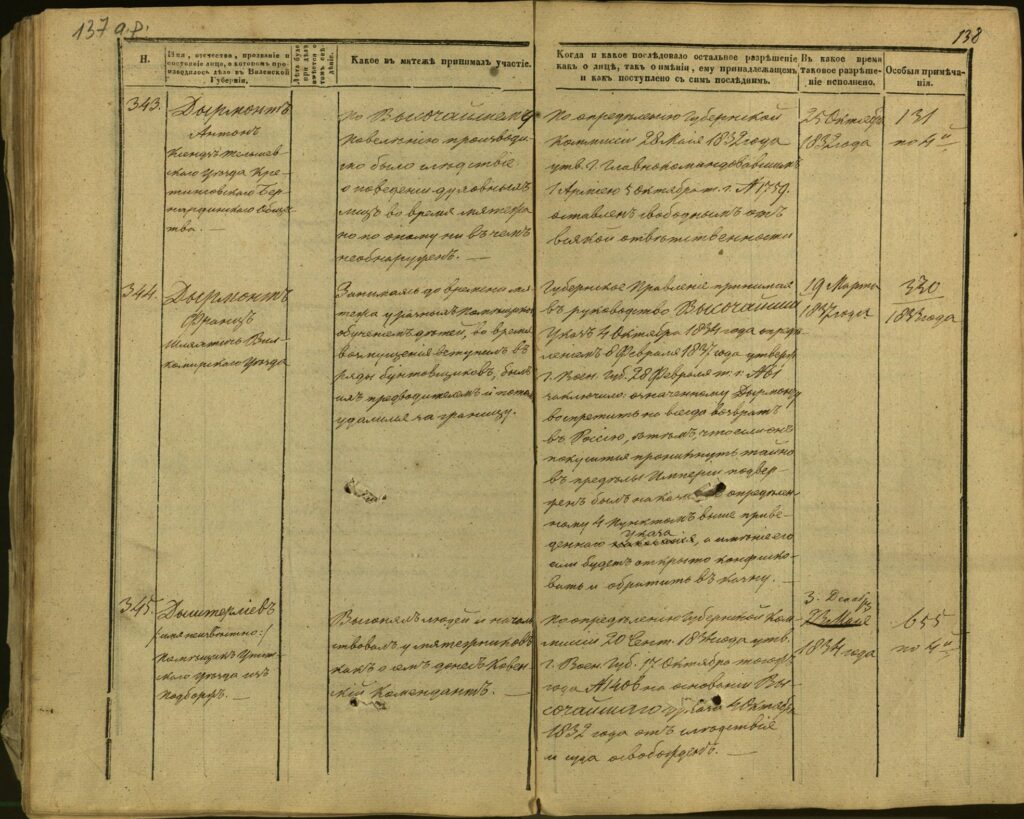 137 а.р.
138
Н.
Имя, отечество, прозваніе и
состояніе лица, о которомъ про-
изводилось дѣло въ Виленской
Губерніи.
Какое въ мятежѣ принималъ участіе.
Когда и какое послѣдовало остальное разрѣшеніе
какъ о лицѣ, такъ о имѣніи, ему принадлежащемъ
и какъ поступлено съ симъ послѣднимъ.
Въ какое время
таковое разрѣше-
ніе исполнено.
Особыя примѣча-
нія.
343.
Дырмонтъ
Антонъ
Ксендзъ Тельшев-
скаго уѣзда Кре-
тинговскаго Бер-
нардинскаго Обще-
ства. —
По Высочайшему
повелѣнію производи-
лось было слѣдствіе
о поведеніи духовныхъ
лицъ во время мятежа
но по оному ни въ чемъ
необнаруженъ. —
По опредѣленію Губернской
Коммисіи 28 Маія 1832 года
утв. Г. Главнокомандовавшимъ
1 Арміею 5 Октября т. г. № 1759.
оставленъ свободнымъ отъ
всякой отвѣтственности
25 Октября
1832 года
131
по 4й
344.
Дырмонтъ
Францъ
Шляхтичъ Вил-
комирскаго уѣзда
Занимаясь до времени мя-
тежа у разныхъ помѣщиковъ
обученіемъ дѣтей, во время
возмущенія вступилъ въ
ряды бунтовщиковъ, былъ
ихъ предводителемъ и потомъ
удалился за границу.
Губернское Правленіе принимая
въ руководство Высочайшій
Указъ 4 Октября 1834 года опредѣ-
леніемъ 8 Февраля 1837 года утверж.
Г. Воен. Губ. 28 Февраля т. г. № 61
заключило: означенному Дырмонту
воспретить на всегда возвратъ
въ Россію, съ тѣмъ, что если онъ
покусится проникнуть тайно
въ предѣлы Имперіи подвер-
женъ былъ опредѣлен-
ному 4 пунктомъ выше приве-
деннаго Указа, а имѣніе его
если будетъ открыто конфиско-
вать и обратить въ казну. —
19 Марта
1837 года
330
1835 года
345.
Дыштерлевъ
/имя неизвѣстно:/
Помѣщикъ Упит-
скаго уѣзда изъ
Подборжъ. —
Высылалъ людей и началь-
ствовалъ у мятежниковъ
какъ о семъ донесъ Ковен-
скій Комендантъ. —
По опредѣленію Губернской Ком-
мисіи 20 Сент. 1834 года утв.
Г. Воен. Губ. 17 Октября тогожъ
года № 1406 на основаніи Вы-
сочайшаго Указа 4 Октября
1832 года отъ слѣдствія
и суда освобожденъ. —
3. Декабр
23 Маія
1834 года
655
по 4й